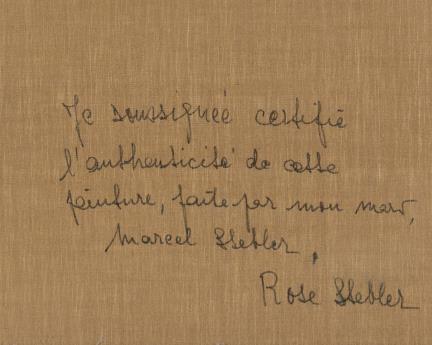 Je soussigneé certifie
l'authenticité de cette
peinture, faite par mon mari,
Marcel Stebler,
Rose Stebler